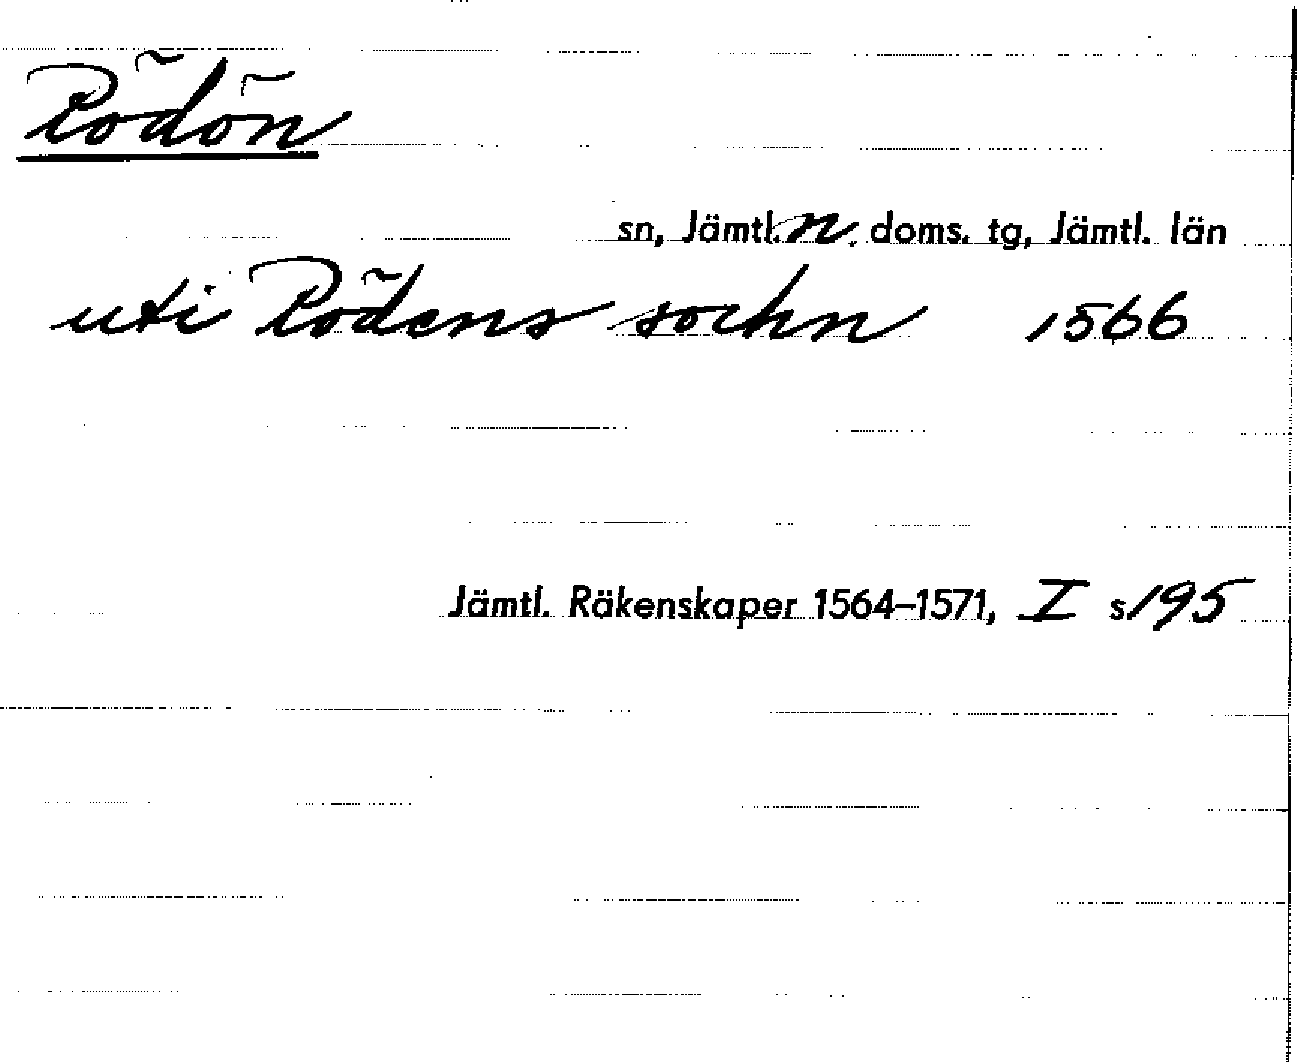 Rödön
sn, Jämtl. n. doms. tg, Jämtl. län
uti Rödens sochn 1566
Jämtl. Räkenskaper 1564–1571, I s 195